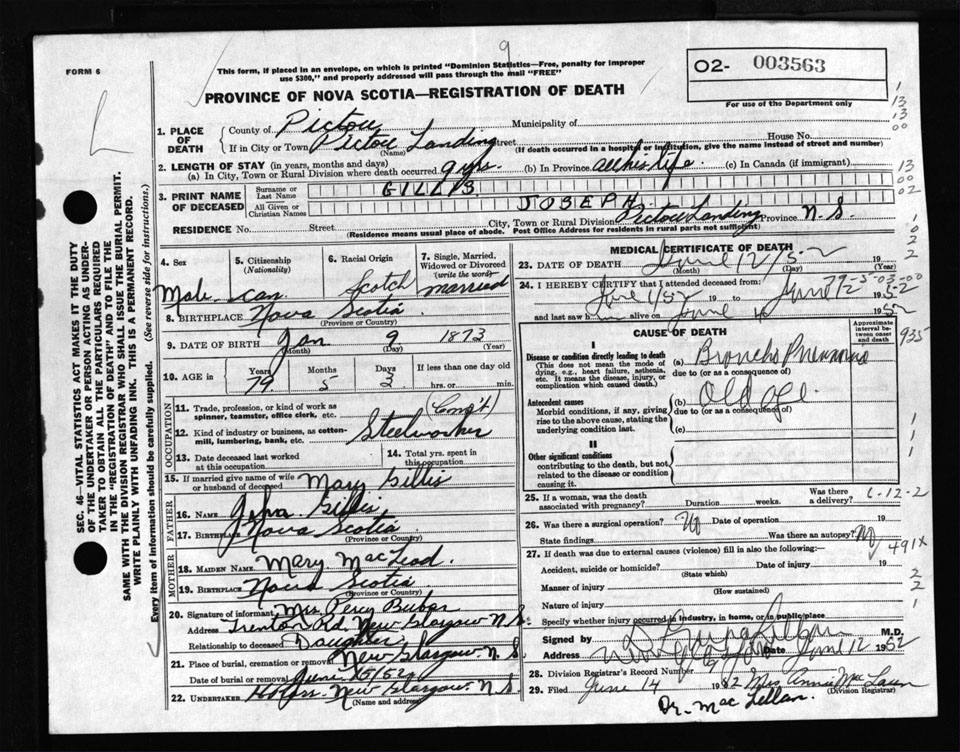 9
FORM 6
This form, if placed in an envelope, on which is printed "Dominion Statistics—Free, penalty for improper
use $300," and properly addressed will pass through the mail "FREE"
02- 003563
For use of the Department only
PROVINCE OF NOVA SCOTIA—REGISTRATION OF DEATH
1. PLACE OF DEATH
County of Pictou Municipality of
If in City or Town Pictou Landing Street House No.
(Name) (If death occurred in a hospital or institution, give the name instead of street and number)
2. LENGTH OF STAY (in years, months and days)
(a) In City, Town or Rural Division where death occurred 9 yrs. (b) In Province all his life. (c) In Canada (if immigrant)
3. PRINT NAME OF DECEASED
Surname or Last Name GILLIS
All Given or Christian Names JOSEPH
RESIDENCE No. Street City, Town or Rural Division Pictou Landing Province N. S.
(Residence means usual place of abode. Post Office Address for residents in rural parts not sufficient)
4. Sex Male
5. Citizenship (Nationality) Can.
6. Racial Origin Scotch
7. Single, Married, Widowed or Divorced (write the word) married
8. BIRTHPLACE Nova Scotia
(Province or Country)
9. DATE OF BIRTH Jan 9 1873
(Month) (Day) (Year)
10. AGE in Years 79 Months 5 Days 3 If less than one day old hrs. or min.
OCCUPATION
11. Trade, profession, or kind of work as spinner, teamster, office clerk, etc.
12. Kind of industry or business, as cotton-mill, lumbering, bank, etc. Steelworker
13. Date deceased last worked at this occupation
14. Total yrs. spent in this occupation
15. If married give name of wife or husband of deceased Mary Gillis
FATHER
16. NAME John Gillis
17. BIRTHPLACE Nova Scotia
(Province or Country)
MOTHER
18. MAIDEN NAME Mary MacLeod.
19. BIRTHPLACE Nova Scotia
(Province or Country)
20. Signature of informant Mrs. Percy
Address Trenton Rd. New Glasgow N. S.
Relationship to deceased Daughter
21. Place of burial, cremation or removal New Glasgow. N. S.
Date of burial or removal June /52
22. UNDERTAKER New Glasgow. N. S.
(Name and address)
MEDICAL CERTIFICATE OF DEATH
23. DATE OF DEATH June 12/52 19
(Month) (Day) (Year)
79-5-03-00
24. I HEREBY CERTIFY that I attended deceased from:
June 1/52 19 to June 12 1952
and last saw h alive on June 1952
CAUSE OF DEATH
Approximate interval between onset and death
935
I
Disease or condition directly leading to death (a) Broncho Pneumonia
(This does not mean the mode of dying, e.g., heart failure, asthenia, etc. It means the disease, injury, or complication which caused death.)
due to (or as a consequence of)
Antecedent causes (b) Old age
Morbid conditions, if any, giving rise to the above cause, stating the underlying condition last.
due to (or as a consequence of)
(c)
II
Other significant conditions
contributing to the death, but not related to the disease or condition causing it.
25. If a woman, was the death associated with pregnancy? Duration weeks. Was there a delivery? 6-12-2
26. Was there a surgical operation? No Date of operation 19
State findings Was there an autopsy? No
491X
27. If death was due to external causes (violence) fill in also the following:—
Accident, suicide or homicide? Date of injury 19
(State which)
Manner of injury
(How sustained)
Nature of injury
Specify whether injury occurred in industry, in home, or in public place
Signed by M.D.
Address Date June 12 1952
28. Division Registrar's Record Number
29. Filed June 14 1952 Mrs Annie Mc Laren
(Division Registrar)
Dr. Mac Lellan.
SEC. 46—VITAL STATISTICS ACT MAKES IT THE DUTY
OF THE UNDERTAKER OR PERSON ACTING AS UNDER-
TAKER TO OBTAIN ALL THE PARTICULARS REQUIRED
IN THE "REGISTRATION OF DEATH" AND TO FILE THE
SAME WITH THE DIVISION REGISTRAR WHO SHALL ISSUE THE BURIAL PERMIT.
WRITE PLAINLY WITH UNFADING INK. THIS IS A PERMANENT RECORD.
Every item of information should be carefully supplied. (See reverse side for instructions.)